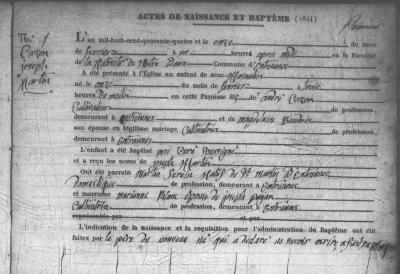 ACTES DE NAISSANCE ET BAPTÊME (1844)
N.º 1
Cozon
joseph
Martin
L'an mil-huit-cent-quarante-quatre et le onze du mois
de février à une heures après midi en la Paroisse
de la Nativité de Notre Dame Commune d'Entraunes
A été présenté à l'Église un enfant de sexe Masculin
né le onze du mois de février à trois
heures du matin en cette Paroisse fils d'André Cozon
Cultivateur de profession,
demeurant à Entraunes et de Magdelaine
son épouse en légitime mariage Cultivatrice de profession,
demeurant à Entraunes
L'enfant a été baptisé par moi Curé soussigné
et a reçu les noms de joseph Martin
Ont été parrain Martin natif de St Martin d'Entraunes
Domestique de profession, demeurant à Entraunes
et marraine marianne épouse de joseph
Cultivatrice de profession, demeurant à Entraunes
représentés par et par
L'indication de la naissance et réquisition pour l'administration du Baptême ont été
faites par le père du nouveau né qui a déclaré ne savoir écrire